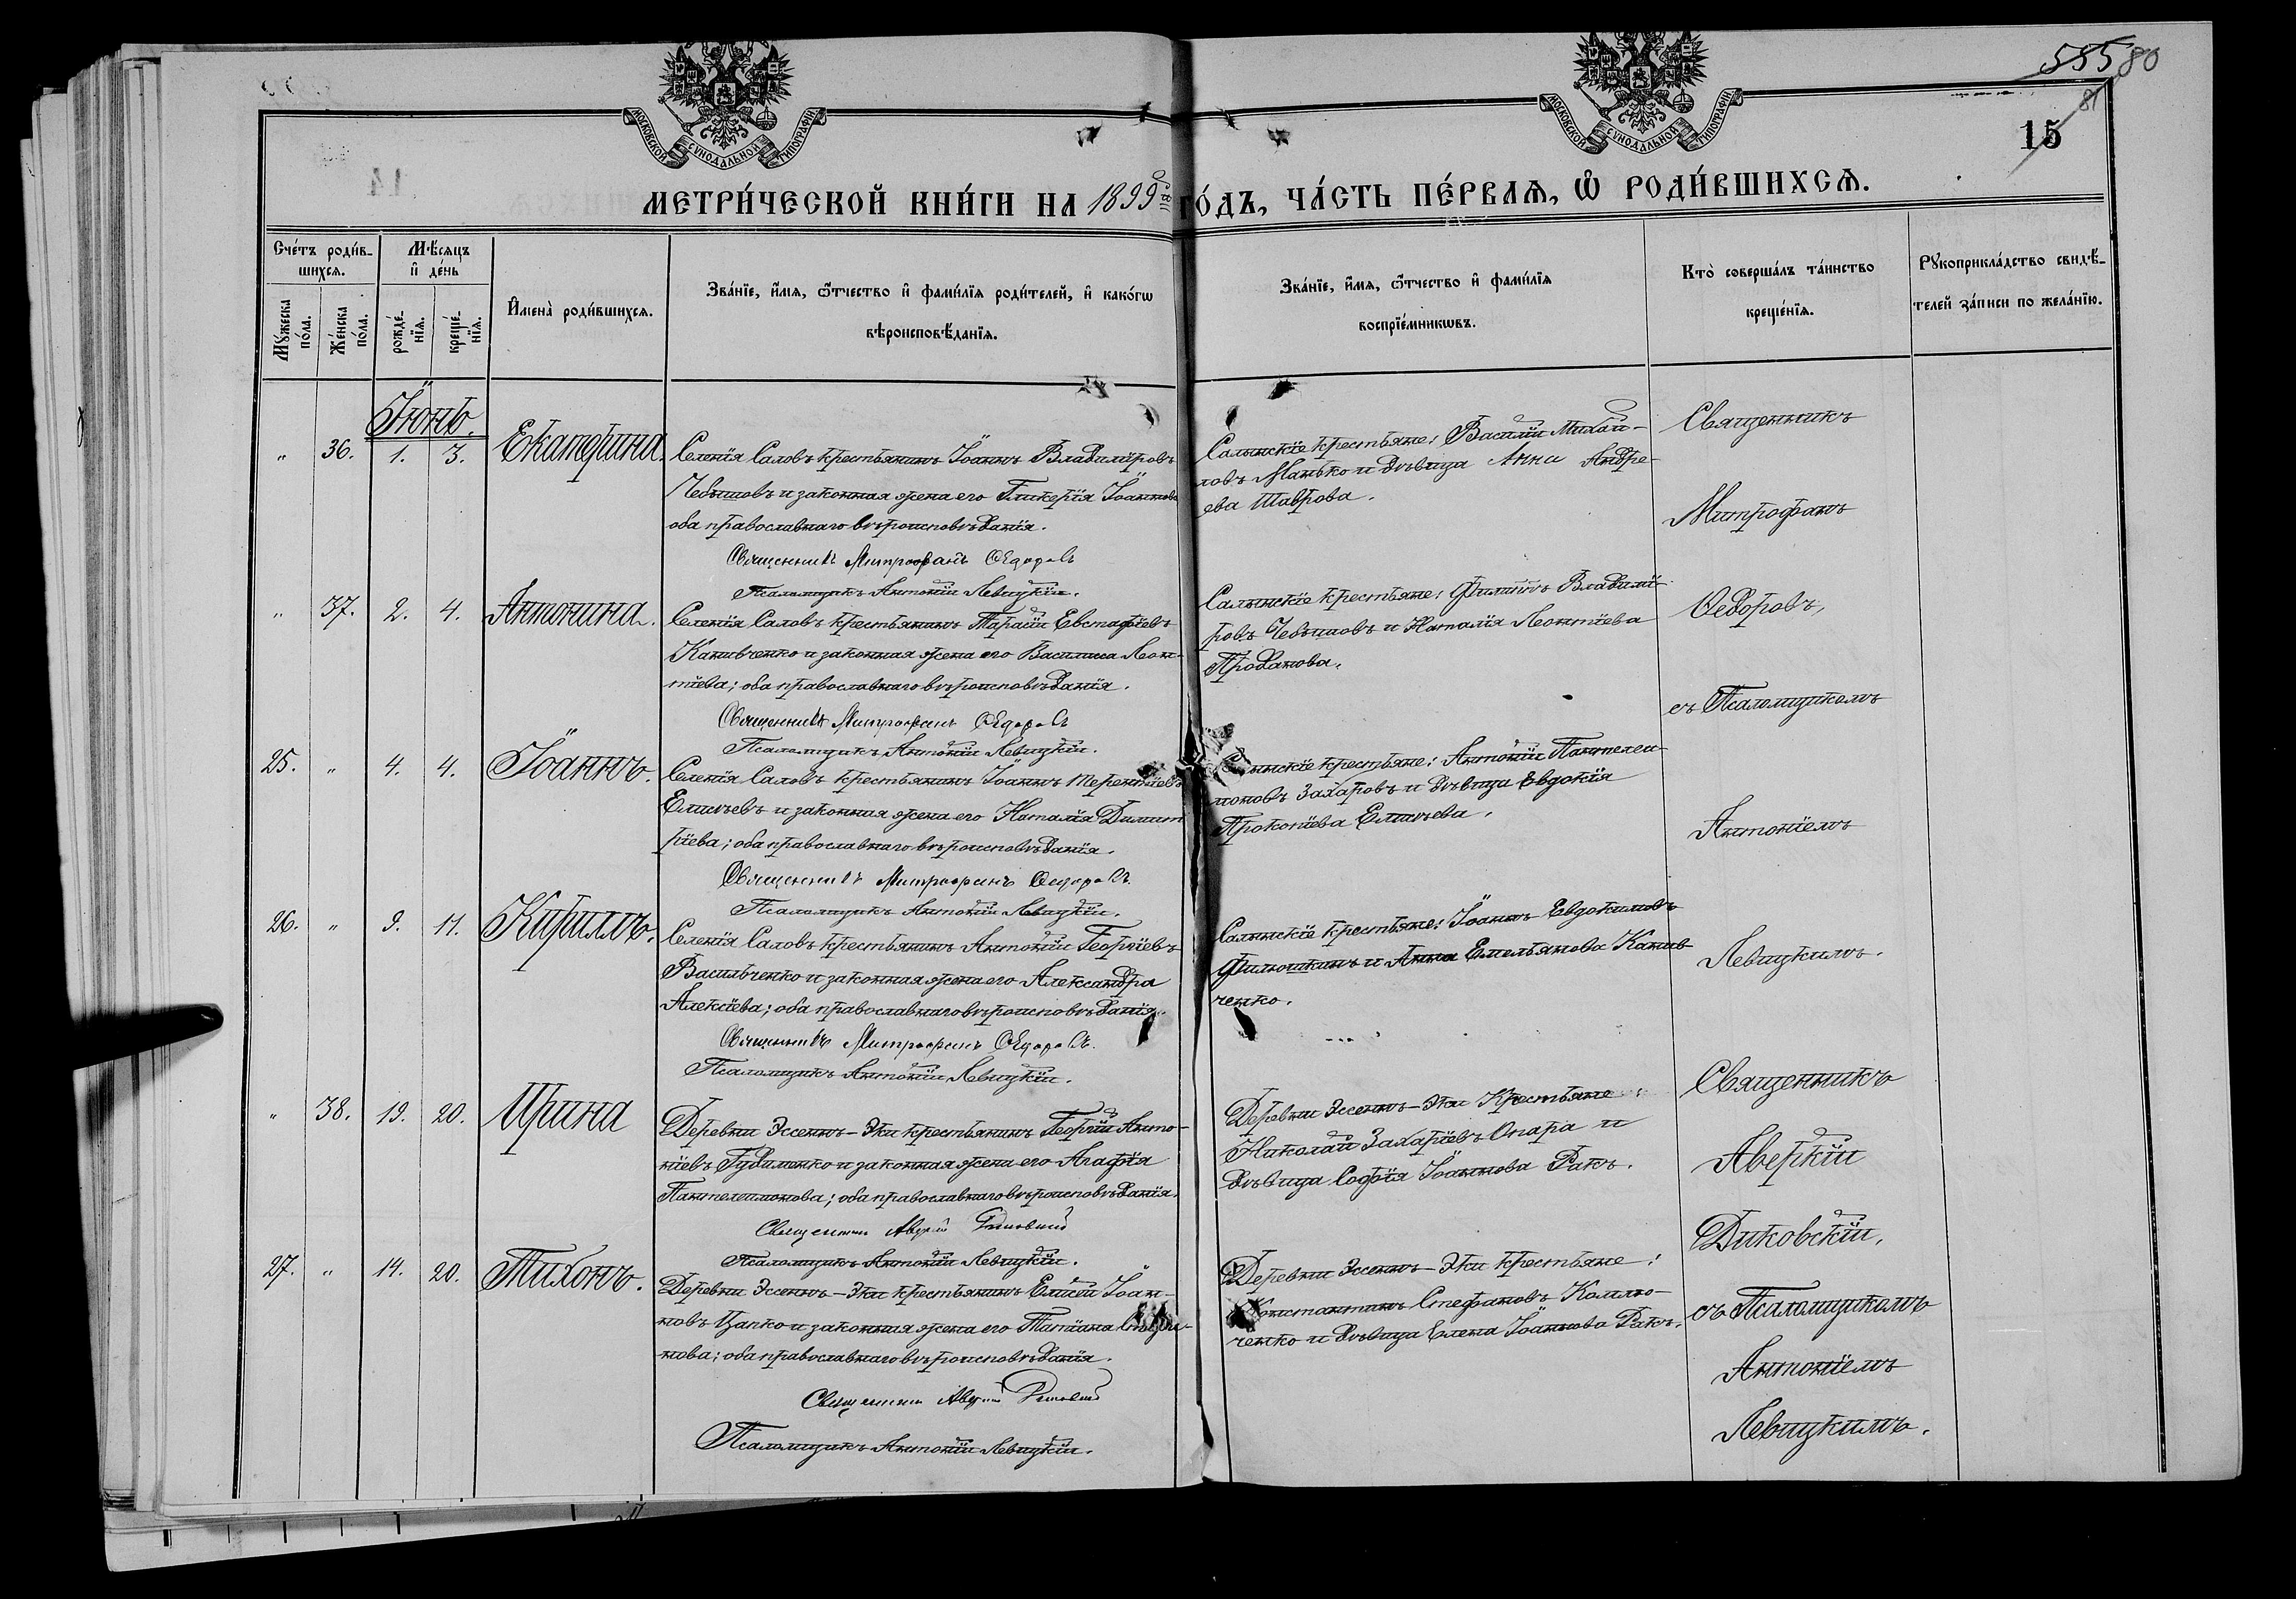 555 80
81
15
МОСКОВСКОЙ СѴНОДАЛЬНОЙ ТИПОГРАФІИ
МОСКОВСКОЙ СѴНОДАЛЬНОЙ ТИПОГРАФІИ
МЕТРИ́ЧЕСКОЙ КНИ́ГИ НА 1899й ГО́ДЪ, ЧА́СТЬ ПЕ́РВАѦ, Ѡ҆ РОДИ́ВШИХСѦ.
Сче́тъ роди́в-
шихсѧ.
Мꙋ́жеска по́ла.
Же́нска по́ла.
Мѣ́сѧцъ и҆ де́нь
рожде́-нїѧ.
креще́-нїѧ.
И҆мена̀ роди́вшихсѧ.
Зва́нїе, и҆́мѧ, ѻ҆́тчество и҆ фами́лїѧ роди́телей, и҆ како́гѡ
вѣроисповѣ́данїѧ.
Зва́нїе, и҆́мѧ, ѻ҆́тчество и҆ фами́лїѧ
воспрїе́мникѡвъ.
Кто̀ соверша́лъ та́инство
креще́нїѧ.
Рꙋкоприкла́дство свидѣ́-
телей за́писи по жела́нїю.
Іюнь.
" 36. 1. 3. Екатерина.
Селенія Саловъ крестьянинъ Іоаннъ Владиміровъ
Чебышовъ и законная жена его Гликерія Іоаннова
оба православнаго вѣроисповѣданія.
Священникъ Митрофанъ Ѳедоровъ
Псаломщикъ Антоній Левицкій.
Салынскіе крестьяне: Василій Михай-
ловъ Манько и дѣвица Анна Андре-
ева Шаврова.
Священникъ
Митрофанъ
Ѳедоровъ,
съ Псаломщикомъ
Антоніемъ
Левицкимъ.
" 37. 2. 4. Антонина.
Селенія Саловъ крестьянинъ Тарасій Евстафіевъ
Канивченко и законная жена его Василиса Леон-
тіева; оба православнаго вѣроисповѣданія.
Священникъ Митрофанъ Ѳедоровъ
Псаломщикъ Антоній Левицкій.
Салынскіе крестьяне: Филиппъ Владимі-
ровъ Чебышовъ и Наталія Леонтіева
Проданова.
25. " 4. 4. Іоаннъ.
Селенія Саловъ крестьянинъ Іоаннъ Терентіевъ
Елисѣевъ и законная жена его Наталія Димит
ріева; оба православнаго вѣроисповѣданія.
Священникъ Митрофанъ Ѳедоровъ.
Псаломщикъ Антоній Левицкій.
крестьяне: Антоній Пантелеи-
моновъ Захаровъ и дѣвица Евдокія
Прокопіева Елисѣева.
26. " 9. 11. Кириллъ.
Селенія Саловъ крестьянинъ Антоній Георгіевъ
Васильченко и законная жена его Александра
Алексіева; оба православнаго вѣроисповѣданія.
Священникъ Митрофанъ Ѳедоровъ.
Псаломщикъ Антоній Левицкій.
Салынскіе крестьяне: Іоаннъ Евдокимовъ
Филюшкинъ и Анна Емельянова Канив-
ченко.
" 38. 19. 20. Ирина
Деревни Эссенъ-Эки крестьянинъ Георгій Анто-
ніевъ Гудименко и законная жена его Агафія
Пантелеимонова; оба православнаго вѣроисповѣданія.
Священникъ Аверкій Диковскій
Псаломщикъ Антоній Левицкій.
Деревни Эссенъ-Эки Крестьяне:
Николай Захаріевъ Опара и
дѣвица Софія Іоаннова Ракъ.
Священникъ
Аверкій
Диковскій,
съ Псаломщикомъ
Антоніемъ
Левицкимъ.
27. " 14. 20. Тихонъ.
Деревни Эссенъ-Эки крестьянинъ Елисей Іоан-
новъ Цапко и законная жена его Татіана
нова; оба православнаго вѣроисповѣданія.
Священникъ Аверкій Диковскій
Псаломщикъ Антоній Левицкій.
Деревни Эссенъ-Эки крестьяне:
Константинъ Стефановъ
ченко и дѣвица Елена Іоаннова Ракъ.